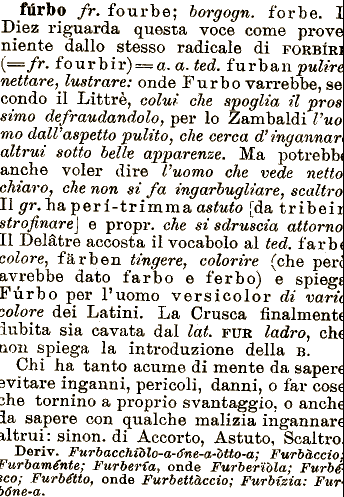 fúrbo fr. fourbe; borgogn. forbe. I
Diez riguarda questa voce come prove
niente dallo stesso radicale di FORBÍRE
(=fr. fourbir)=a. a. ted. furban pulire
nettare, lustrare: onde Furbo varrebbe, se
condo il Littrè, colui che spoglia il pros
simo defraudandolo, per lo Zambaldi l'uo
mo dall'aspetto pulito, che cerca d'ingannar
altrui sotto belle apparenze. Ma potrebb
anche voler dire l'uomo che vede netto
chiaro, che non si fa ingarbugliare, scaltro
Il gr. ha perí-trimma astuto [da tribeir
strofinare] e propr. che si sdruscia attorno
Il Delâtre accosta il vocabolo al ted. farb
colore, färben tingere, colorire (che però
avrebbe dato farbo e ferbo) e spieg
Fúrbo per l'uomo versicolor di vario
colore dei Latini. La Crusca finalmente
dubita sia cavata dal lat. FUR ladro, che
non spiega la introduzione della B.
Chi ha tanto acume di mente da sapere
evitare inganni, pericoli, danni, o far cose
che tornino a proprio svantaggio, o anche
da sapere con qualche malizia ingannar
altrui: sinon. di Accorto, Astuto, Scaltro.
Deriv. Furbacchiòlo-a-óne-a-òtto-a; Furbàccio;
Furbaménte; Furbería, onde Furberïòla; Furbé
sco; Furbétto, onde Furbettàccio; Furbízia: Fur
bóne-a.